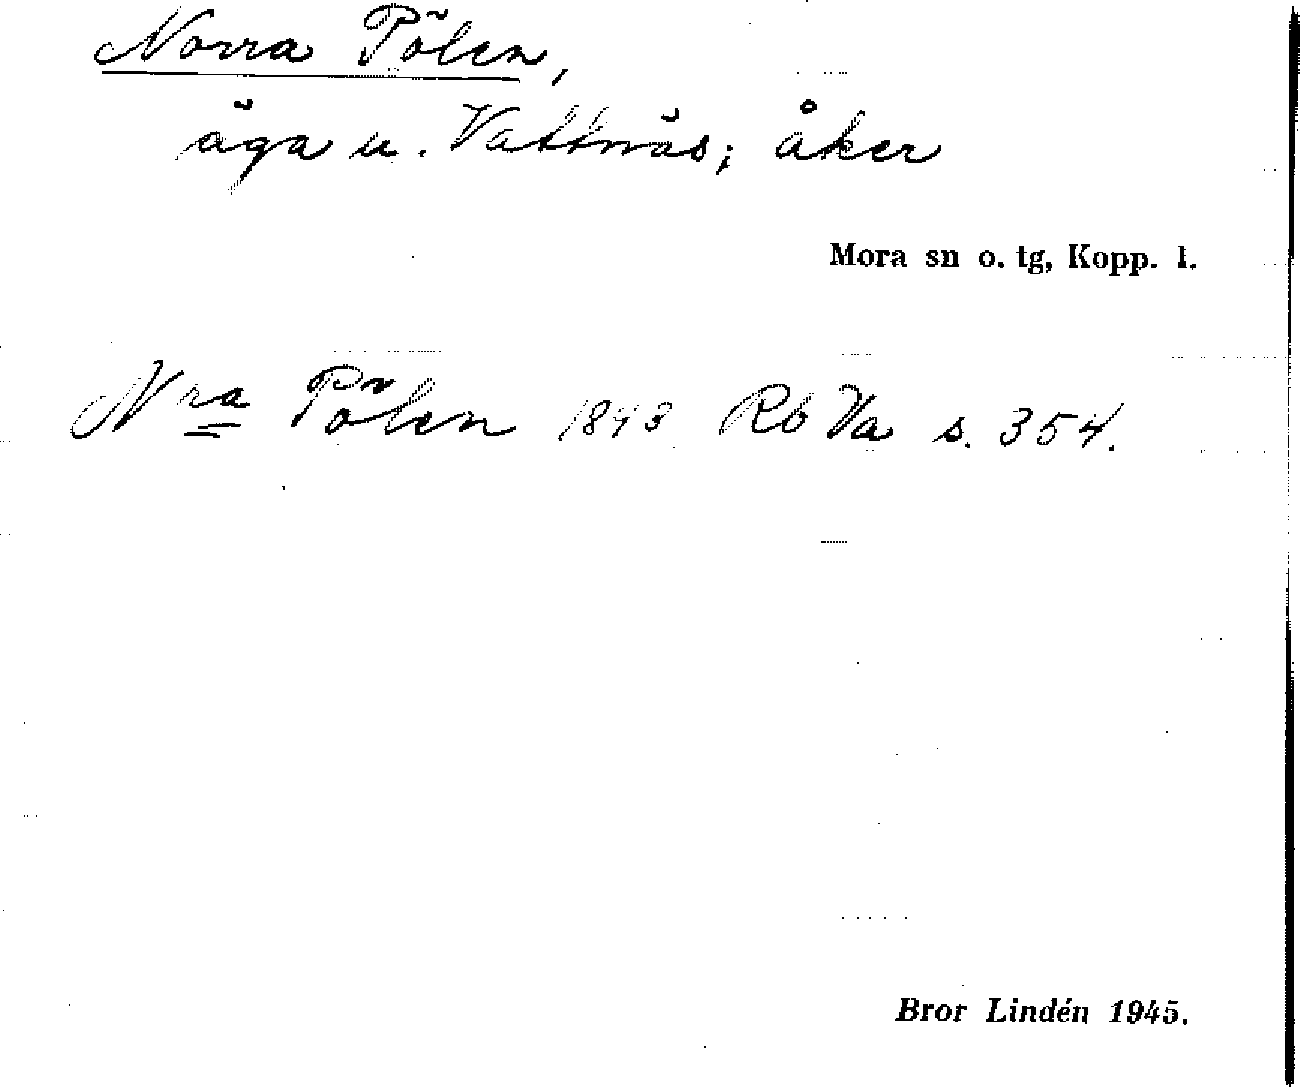 Norra Pölen,
äga u. Vattnäs; åker
Mora sn o. tg, Kopp. l.
Nra Pölen 1843 Rb Va s. 354.
Bror Lindén 1945.